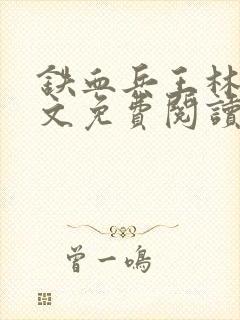 铁血兵王林
文免費閱讀
曾一鳴